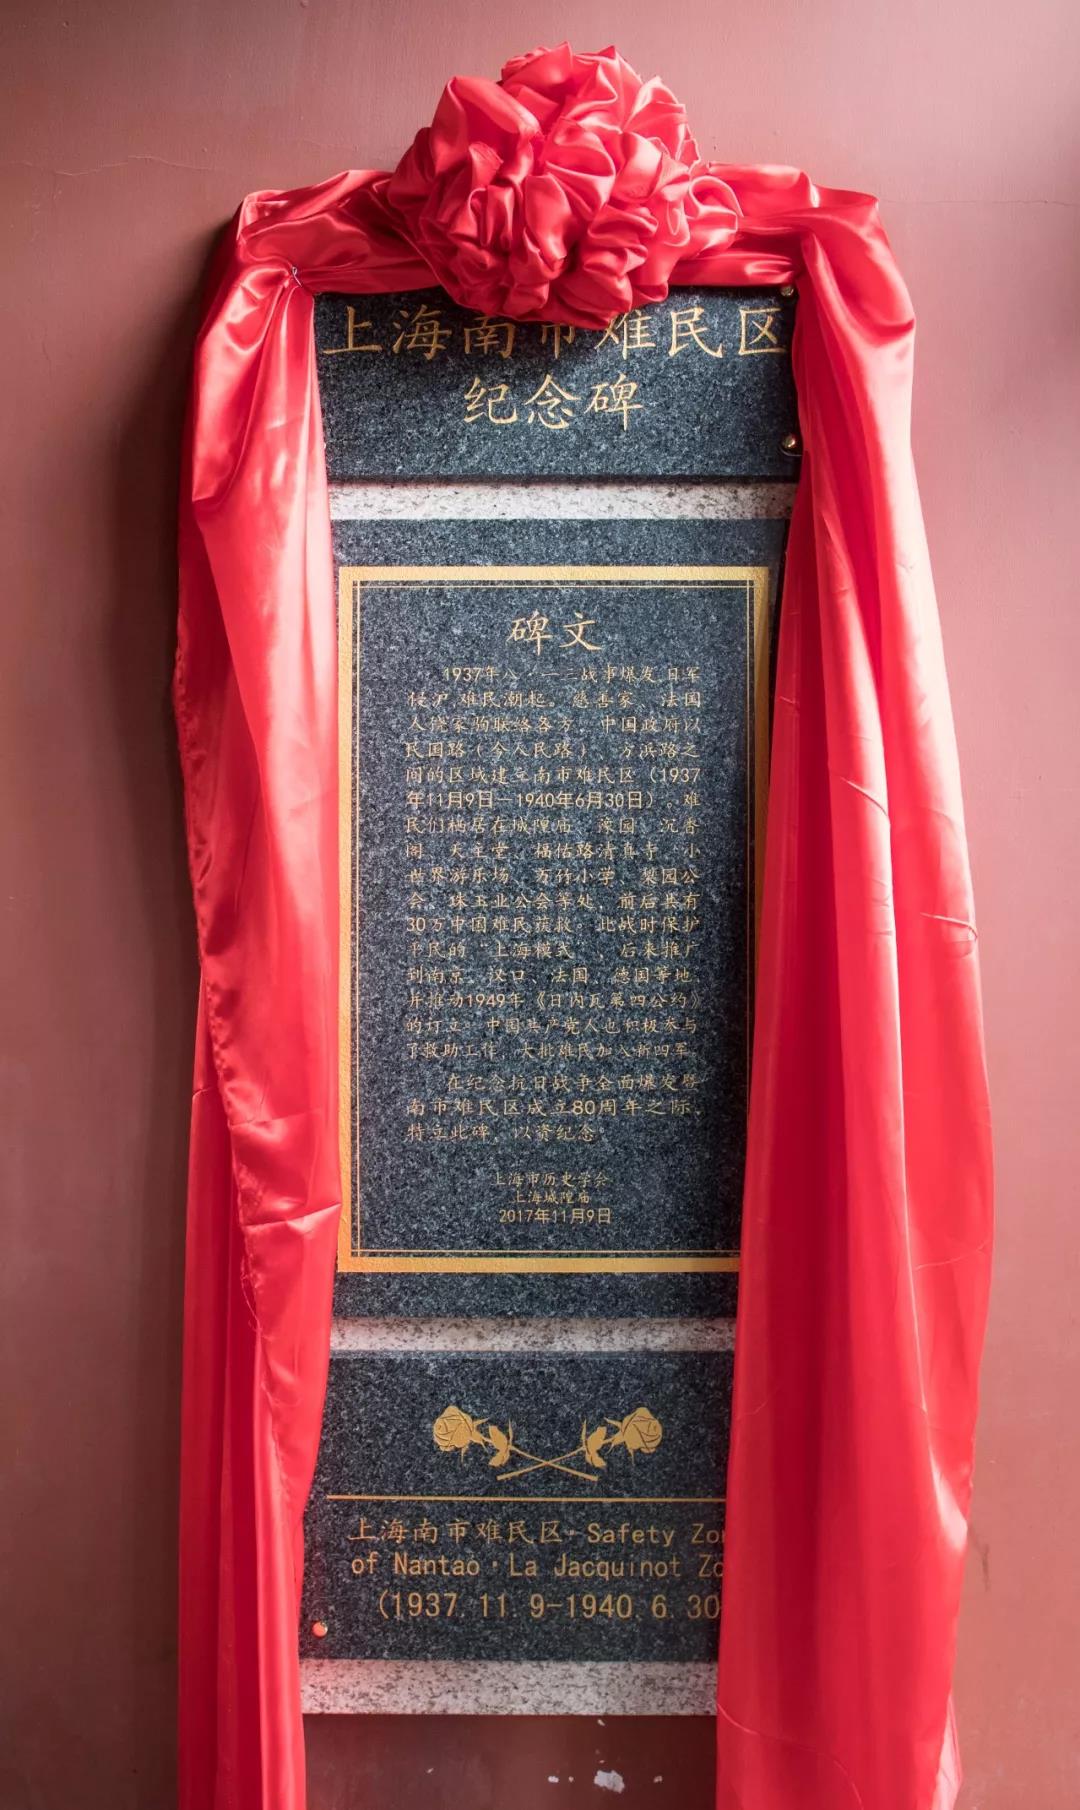 上海南市难民区
纪念碑
碑文
1937年八·一三战事爆发,日军
侵沪,难民潮起。慈善家、法国
人饶家驹联络各方,中国政府以
民国路(今人民路)、方浜路之
间的区域建立南市难民区(1937
年11月9日—1940年6月30日)。难
民们栖居在城隍庙、豫园、沉香
阁、天主堂、福佑路清真寺、小
世界游乐场、万竹小学、梨园公
会、珠玉业公会等处,前后共有
30万中国难民获救。此战时保护
平民的“上海模式”,后来推广
到南京、汉口、法国、德国等地,
并推动1949年《日内瓦第四公约》
的订立。中国共产党人也积极参与
了救助工作,大批难民加入新四军。
在纪念抗日战争全面爆发暨
南市难民区成立80周年之际,
特立此碑,以资纪念。
上海市历史学会
上海城隍庙
2017年11月9日
上海南市难民区·Safety
of Nantao·La Jacquinot
(1937.11.9-1940.6.30